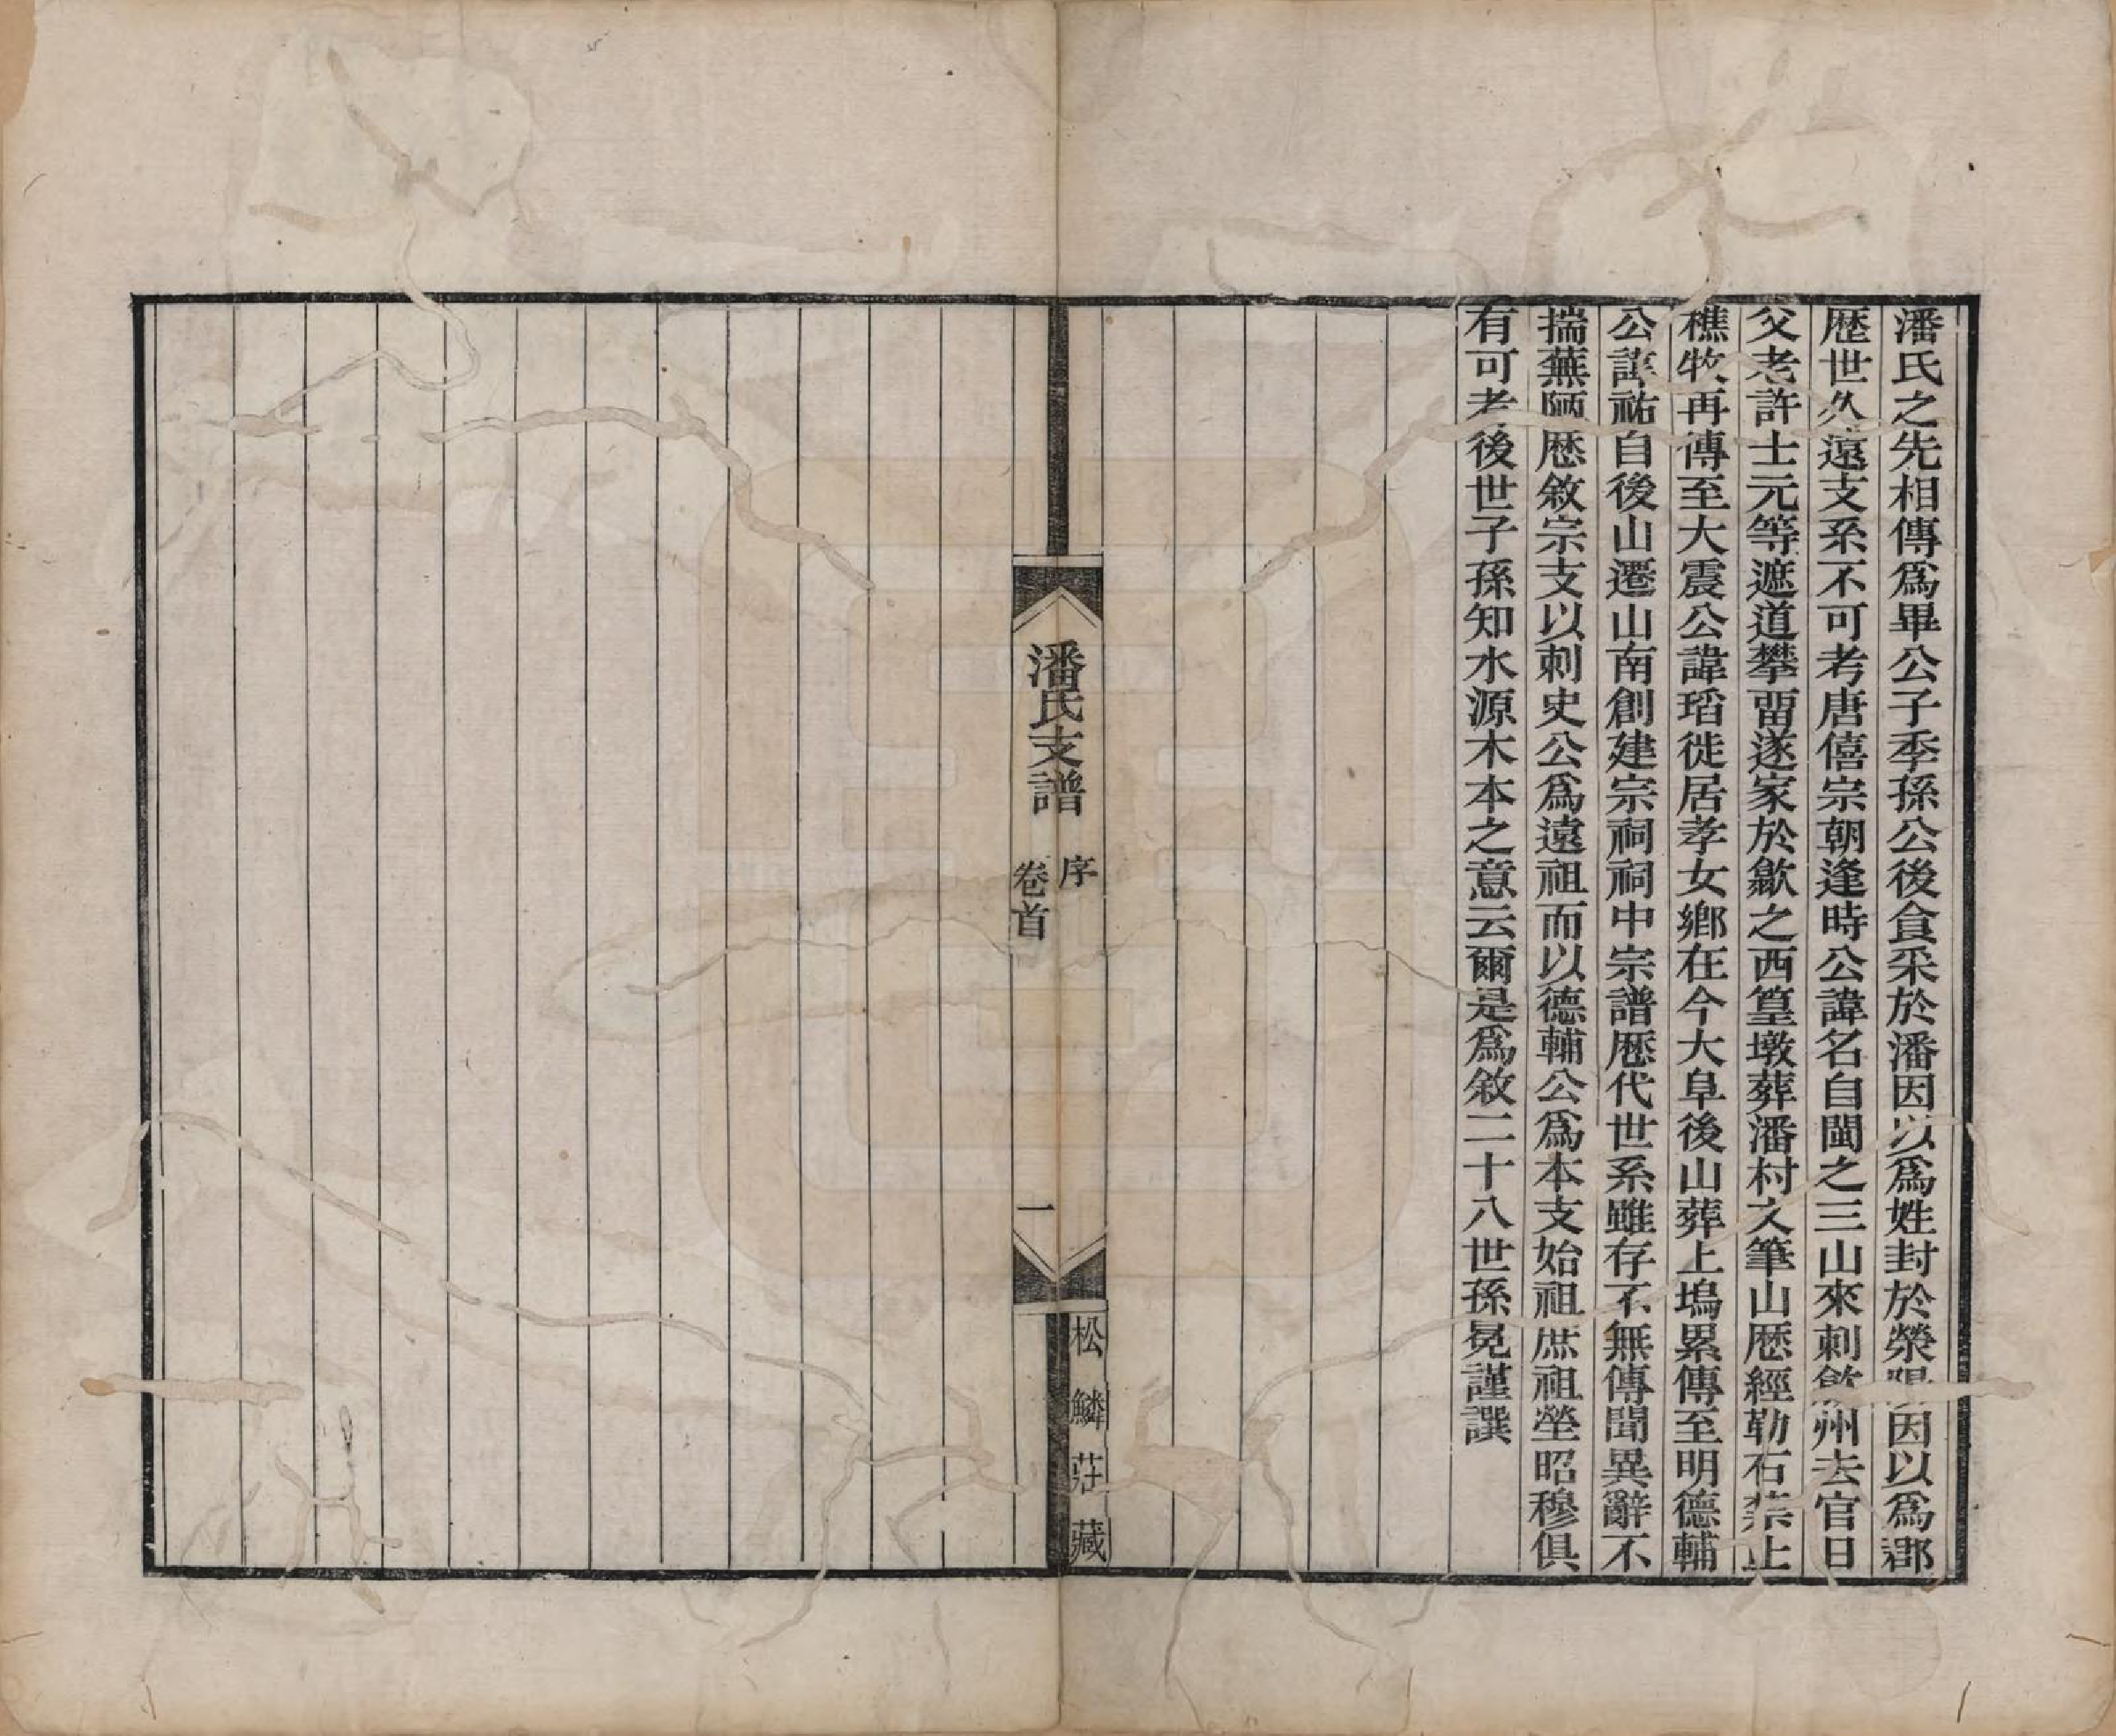 潘氏之先相傳爲畢公子季孫公後食采於潘因以爲姓封於滎陽因以爲郡
歷世久遠支系不可考唐僖宗朝逢時公諱名自閩之三山來刺歙州去官日
父老許士元等遮道攀畱遂家於歙之西篁墩葬潘村文筆山歷經勒石禁止
樵牧再傳至大震公諱瑫徙居孝女鄉在今大阜後山葬上塢累傳至明德輔
公諱祐自後山遷山南創建宗祠祠中宗譜歷代世系雖存不無傳聞異辭不
揣蕪陋歷敘宗支以刺史公爲遠祖而以德輔公爲本支始祖庶祖塋昭穆俱
有可考後世子孫知水源木本之意云爾是爲敘二十八世孫冕謹譔
潘氏支譜
序
卷首
一
松鱗莊藏